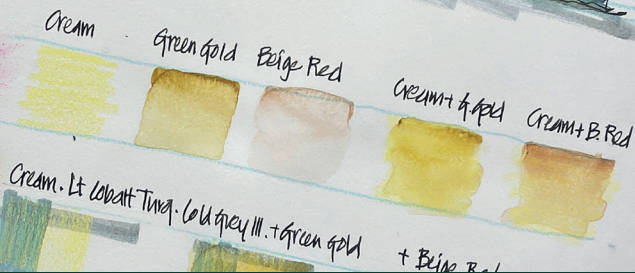 Cream
Green Gold
Beige Red
Cream + G. Gold
Cream + B. Red
Cream. Lt Cobalt Turq. Cold Grey III. + Green Gold
+ Beige Red